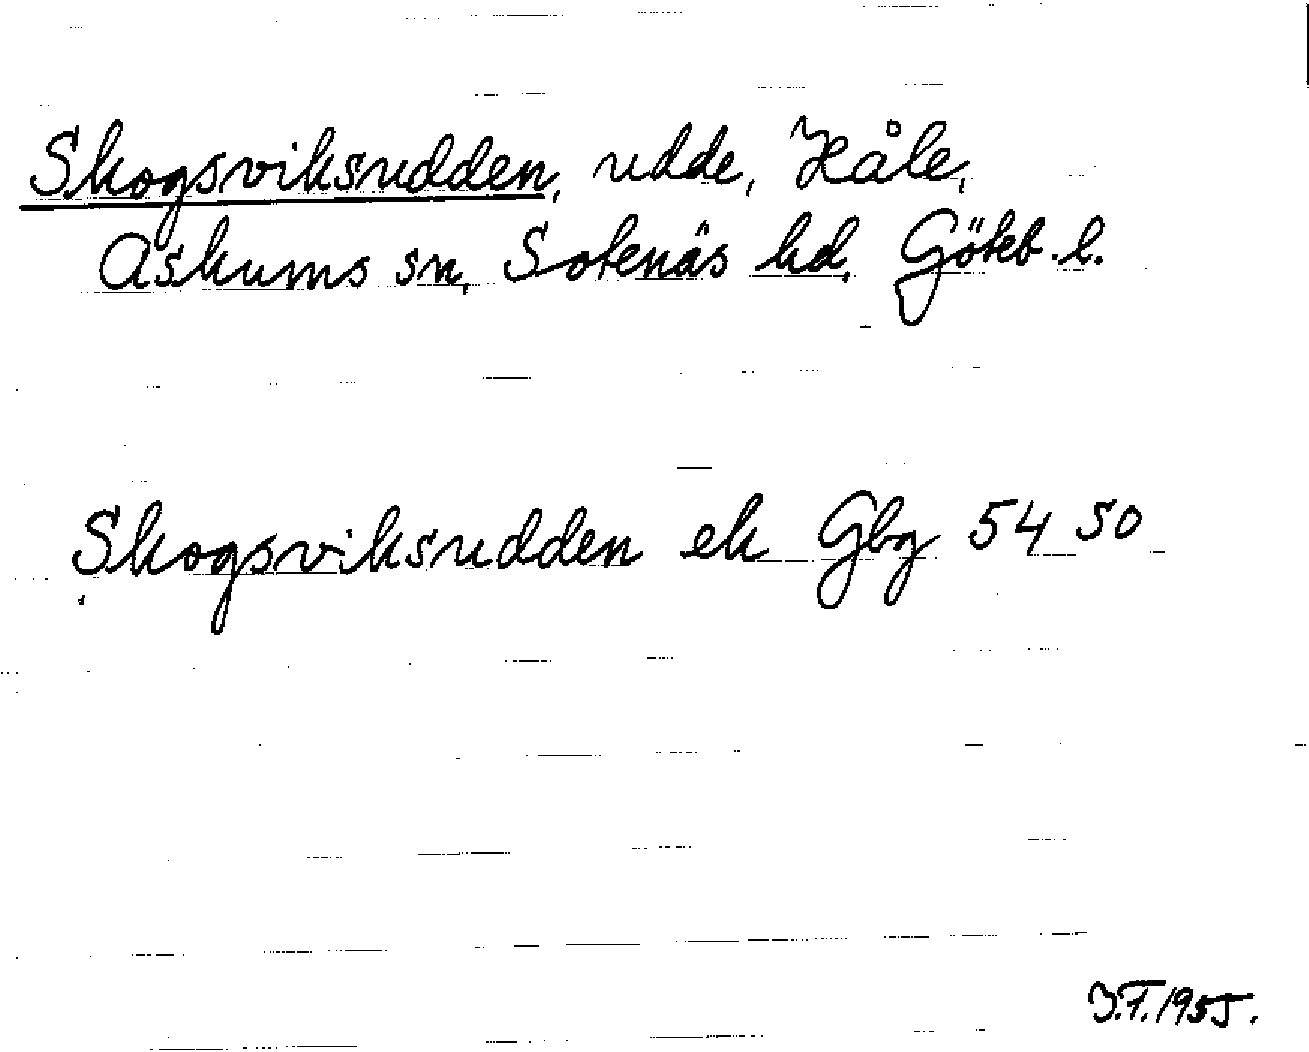 Skogsviksudden, udde, Håle,
Askums sn, Sotenäs hd, Göteb. l.
Skogsviksudden ek Gbg 54 50
I.F. 1955.